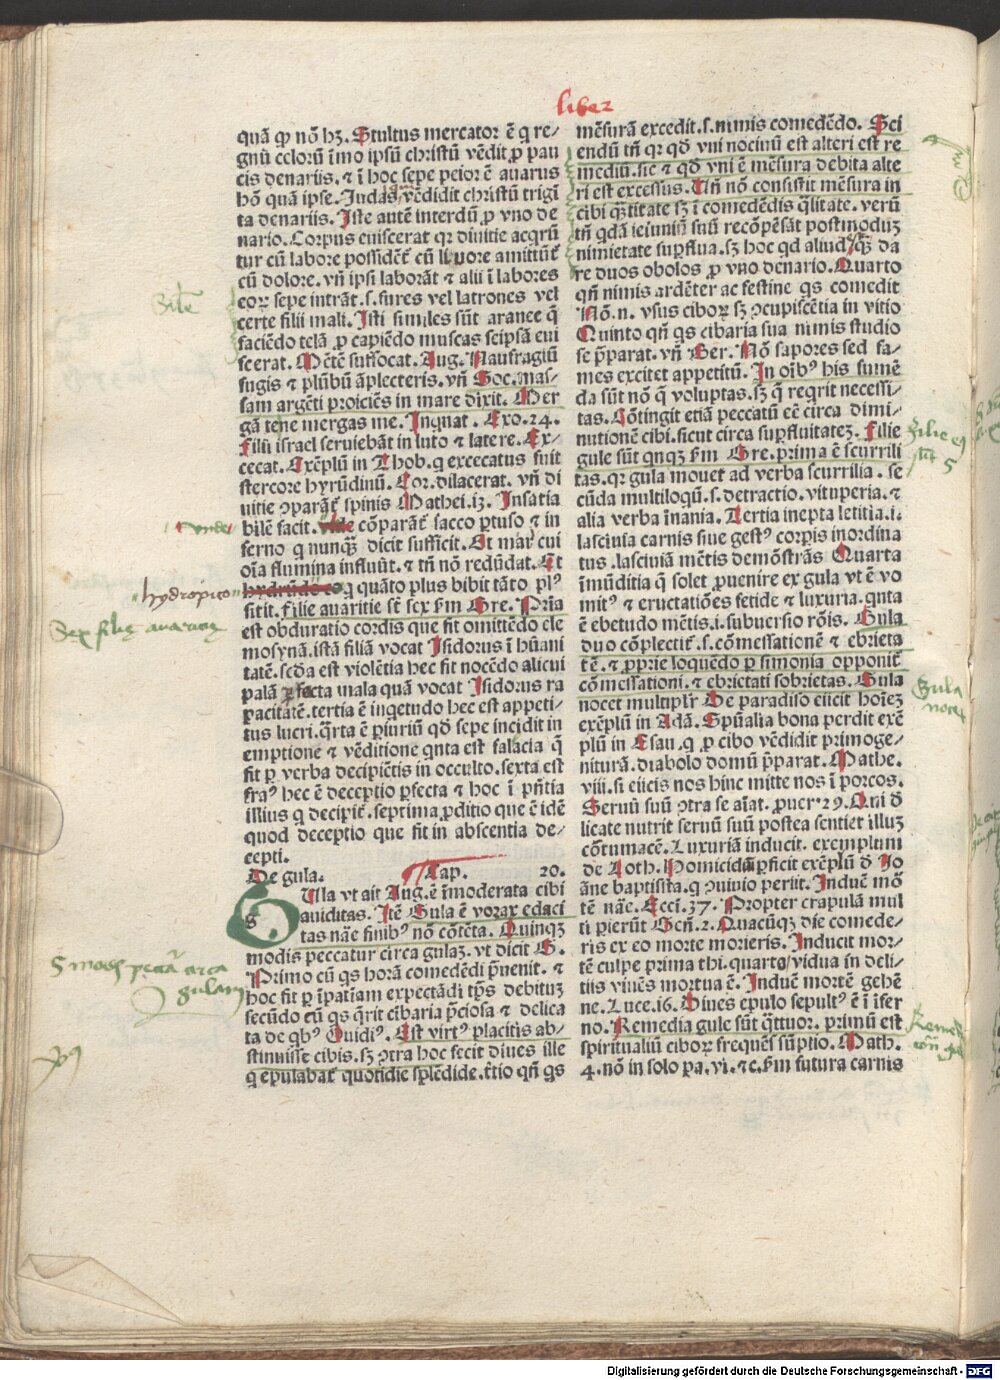 liber
quā qͥ nō hꝫ. Stultus mercator ē q re⸗
gnū celorū īmo ipsū christū vēdit ꝓ pau
cis denariis. ⁊ ī hoc sepe peior ē auarus
hō quā ipse. Judas vēdidit christū trigī
ta denariis. Iste autē interdū ꝓ vno de
nario. Corpus euiscerat qꝛ diuitie acqrū
tur cū labore possidēt᷑ cū liuore amittūt᷑
cū dolore. vn̄ ipsi laborāt ⁊ alii ī labores
eoꝝ sepe intrāt. s. fures vel latrones vel
certe filii mali. Isti similes sūt aranee q̄
faciēdo telā ꝓ capiēdo muscas seipsā eui
scerat. Mētē suffocat. Aug. Naufragiū
fugis ⁊ plūbū āplecteris. vn̄ Soc. mas⸗
sam argēti proiciēs in mare dixit. Mer
gā te ne mergas me. Inqnat. Exo. 24.
Filii israel seruiebāt in luto ⁊ latere. Ex⸗
cecat. Exēplū in Thob. q excecatus fuit
stercore hyrūdinū. Cor. dilacerat. vn̄ di
uitie ꝯparāt᷑ spinis Mathei. 13. Insatia
bilē facit. cōparāt᷑ sacco ꝑtuso ⁊ in
ferno q nunqꝫ dicit sufficit. Et mari cui
oīa flumina influūt. ⁊ tn̄ nō redūdat. Et
q quāto plus bibit tāto plꝰ
sitit. Filie auaritie sūt sex ẜm Gre. Pria
est obduratio cordis que fit omittēdo ele
mosynā. istā filiā vocat Isidorus īhūani
tatē. scd̄a est violētia hec fit nocēdo alicui
palā ꝑfecta mala quā vocat Isidorus ra
pacitatē. tertia ē inqetudo hec est appeti⸗
tus lucri. q̄rta ē ꝑiuriū qd̄ sepe incidit in
emptione ⁊ vēditione qnta est falacia q̄
fit ꝑ verba decipiētis in occulto. sexta est
fraꝰ hec ē deceptio ꝑfecta ⁊ hoc ī pn̄tia
illius q decipit᷑. septima ꝓditio que ē idē
quod deceptio que fit in absentia de⸗
cepti.
De gula. Cap. 20.
GUlla vt ait Aug. ē īmoderata cibi
auiditas. Itē Gula ē vorax edaci
tas nāe finibꝰ nō cōtēta. Quinqꝫ
modis peccatur circa gulaꝫ. vt dicit G.
Primo cū qs horā comedēdi p̄uenit. ⁊
hoc fit ꝑ īpatīam expectādi tp̄s debituꝫ
secūdo cū qs q̄rit cibaria p̄ciosa ⁊ delica
ta de qbꝰ Ouidiꝰ. Est virtꝰ placitis ab⸗
stinuisse cibis. sꝫ ꝯtra hoc fecit diues ille
q epulabat᷑ quotidie splēdide. t̄tio qn̄ qs
mēsurā excedit. s. nimis comedēdo. Sci
endū tn̄ qꝛ qd̄ vni nociuū est alteri est re
mediū. sic ⁊ qd̄ vni ē mēsura debita alte
ri est excessus. Un̄ nō consistit mēsura in
cibi q̄titate sꝫ ī comedēdis q̄litate. verū
tn̄ qdā ieiuniū suū recōpēsāt postmoduꝫ
nimietate supflua. sꝫ hoc qd aliud q̄ꝫ da
re duos obolos ꝓ vno denario. Quarto
qn̄ nimis ardēter ac festine qs comedit
Nō. n. vsus ciboꝝ sꝫ ꝯcupiscētia in vitio
Quinto qn̄ qs cibaria sua nimis studio
se p̄parat. vn̄ Ber. Nō sapores sed fa⸗
mes excitet appetitū. In oībꝰ his sume
da sūt nō q̄ voluptas. sꝫ q̄ reqrit necessi⸗
tas. Cōtingit etiā peccatū eē circa dimi⸗
nutionē cibi. sicut circa supfluitateꝫ. Filie
gule sūt qnqꝫ ẜm Gre. prima ē scurrili
tas. qꝛ gula mouet ad verba scurrilia. se
cūda multiloqū. s. detractio. vituperia. ⁊
alia verba īnania. Tertia inepta letitia. i.
lasciuia carnis siue gestꝰ corpis inordina
tus. lasciuiā mētis demōstrās Quarta
īmūditia q̄ solet ꝓuenire ex gula vt ē vo
mitꝰ ⁊ eructatiōes fetide ⁊ luxuria. qnta
ē ebetudo mētis. i. subuersio rōis. Gula
duo cōplectit᷑. s. cōmessationē ⁊ ebrieta
tē. ⁊ ꝓprie loquēdo ꝑ simonia opponit᷑
cōmessationi. ⁊ ebrietati sobrietas. Gula
nocet multiplr̄ De paradiso eiicit hoīeꝫ
exēplū in Adā. Spūalia bona perdit exē
plū in Esau. q ꝓ cibo vēdidit primoge⸗
niturā. diabolo domū p̄parat. Mathe.
viii. si eiicis nos hinc mitte nos ī porcos.
Seruū suū ꝯtra se aīat. ꝓuer. 29. Qui d̄
licate nutrit seruū suū postea sentiet illuꝫ
cōtumacē. Luxuriā inducit. exemplum
de Loth. Homicidiū ꝑficit exēplū d̄ Jo
āne baptista. q ꝯuiuio periit. Inducē mō
tē nāe. Ecci. 37. Propter crapulā mul
ti pierūt Gen̄. 2. Quacūqꝫ die comede⸗
ris ex eo morte morieris. Inducit mor⸗
tē culpe prima thi. quarto vidua in deli⸗
tiis viuēs mortua ē. Inducē mortē gehē
ne. Luce. 16. Diues epulo sepultꝰ ē ī īfer
no. Remedia gule sūt q̄ttuor. primū est
spiritualiū ciboꝝ frequēs sūptio. Math.
4. nō in solo pa. vi. ⁊c. ẜm futura carnis
hydropico
Sex filie auaricie
5 modis peccat᷑ circa
gulam
Gula
nocet
Digitalisierung gefördert durch die Deutsche Forschungsgemeinschaft - DFG